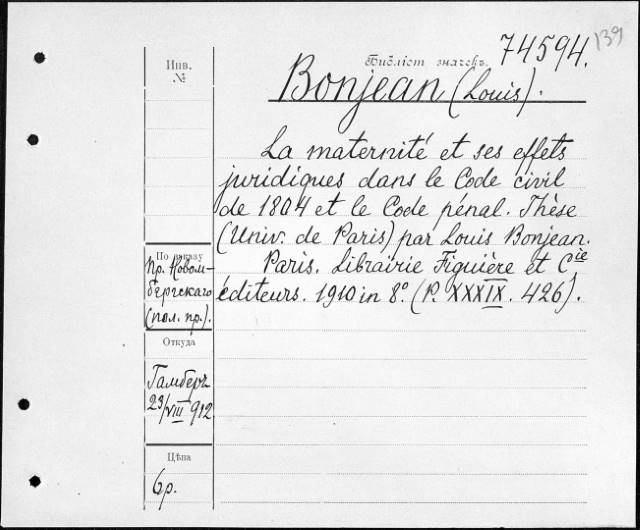 Библіот значекъ. 74594. 139
Инв.
№
Bonjean (Louis).
La maternité et ses effets
juridiques dans le Code civil
de 1804 et le Code pénal. Thèse
(Univ. de Paris) par Louis Bonjean.
Paris. Librairie Figuière et Cie
éditeurs. 1910 in 8º. (P. XXXIX. 426).
По заказу
Пр. Новом-
бергскаго
(пол. пр.).
Откуда
Гамберъ
23/VIII 912
Цѣна
6р.